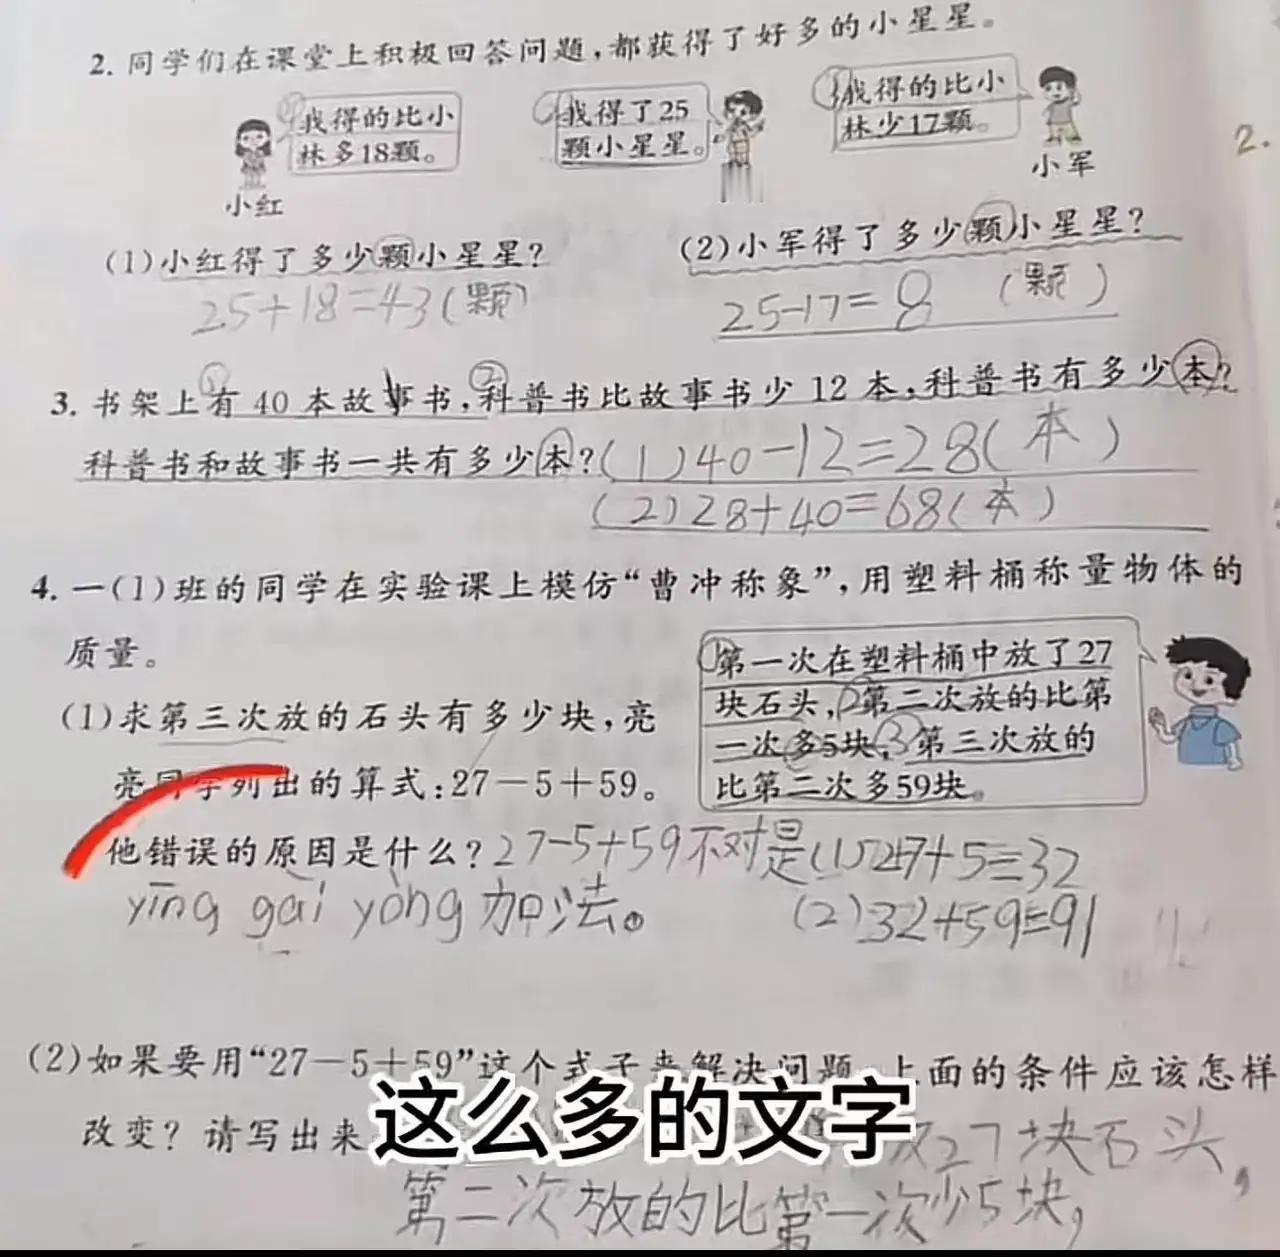 2. 同学们在课堂上积极回答问题，都获得了好多的小星星。
我得的比小
林多18颗。
小红
我得了25
颗小星星。
我得的比小
林少17颗。
小军
2.
(1)小红得了多少颗小星星？
25+18=43(颗)
(2)小军得了多少颗小星星？
25-17=8 (颗)
3. 书架上有40本故事书，科普书比故事书少12本，科普书有多少本？
科普书和故事书一共有多少本？(1)40-12=28(本)
(2)28+40=68(本)
4. 一(1)班的同学在实验课上模仿“曹冲称象”，用塑料桶称量物体的
质量。
①第一次在塑料桶中放了27
块石头，②第二次放的比第
一次多5块，③第三次放的
比第二次多59块。
(1)求第三次放的石头有多少块，亮
亮同学列出的算式：27-5+59。
他错误的原因是什么？27-5+59不对是(1)27+5=32
yīng gāi yòng 加法。 (2)32+59=91
(2)如果要用“27-5+59”这个式子来解决问题，上面的条件应该怎样
改变？请写出来
27块石头，
这么多的文字
第二次放的比第一次少5块，